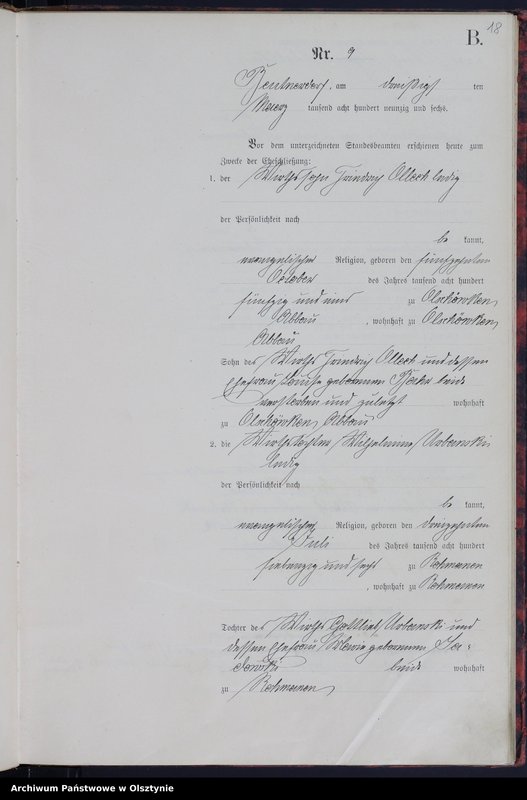 B.
18
Nr. 9
am dreißigsten
Maerz tausend acht hundert neunzig und sechs.
Vor dem unterzeichneten Standesbeamten erschienen heute zum
Zwecke der Eheschließung:
1. der Wirthssohn Friedrich Olleck ledig
der Persönlichkeit nach
be kannt,
evangelischer Religion, geboren den fünfzehnten
October des Jahres tausend acht hundert
fünfzig und eins zu Olschöwken
Abbau, wohnhaft zu Olschöwken
Abbau
Sohn des Wirths Friedrich Olleck und dessen
Ehefrau Louise geborenen beide
verstorben und zuletzt wohnhaft
zu Olschöwken Abbau
2. die Wirthstochter Wilhelmine Urbanski
ledig
der Persönlichkeit nach
be kannt,
evangelischer Religion, geboren den dreizehnten
Juli des Jahres tausend acht hundert
siebenzig und sechs zu Rohmanen
, wohnhaft zu Rohmanen
Tochter des Wirths Gottlieb Urbanski und
dessen Ehefrau Marie geborenen
beide wohnhaft
zu Rohmanen
Archiwum Państwowe w Olsztynie